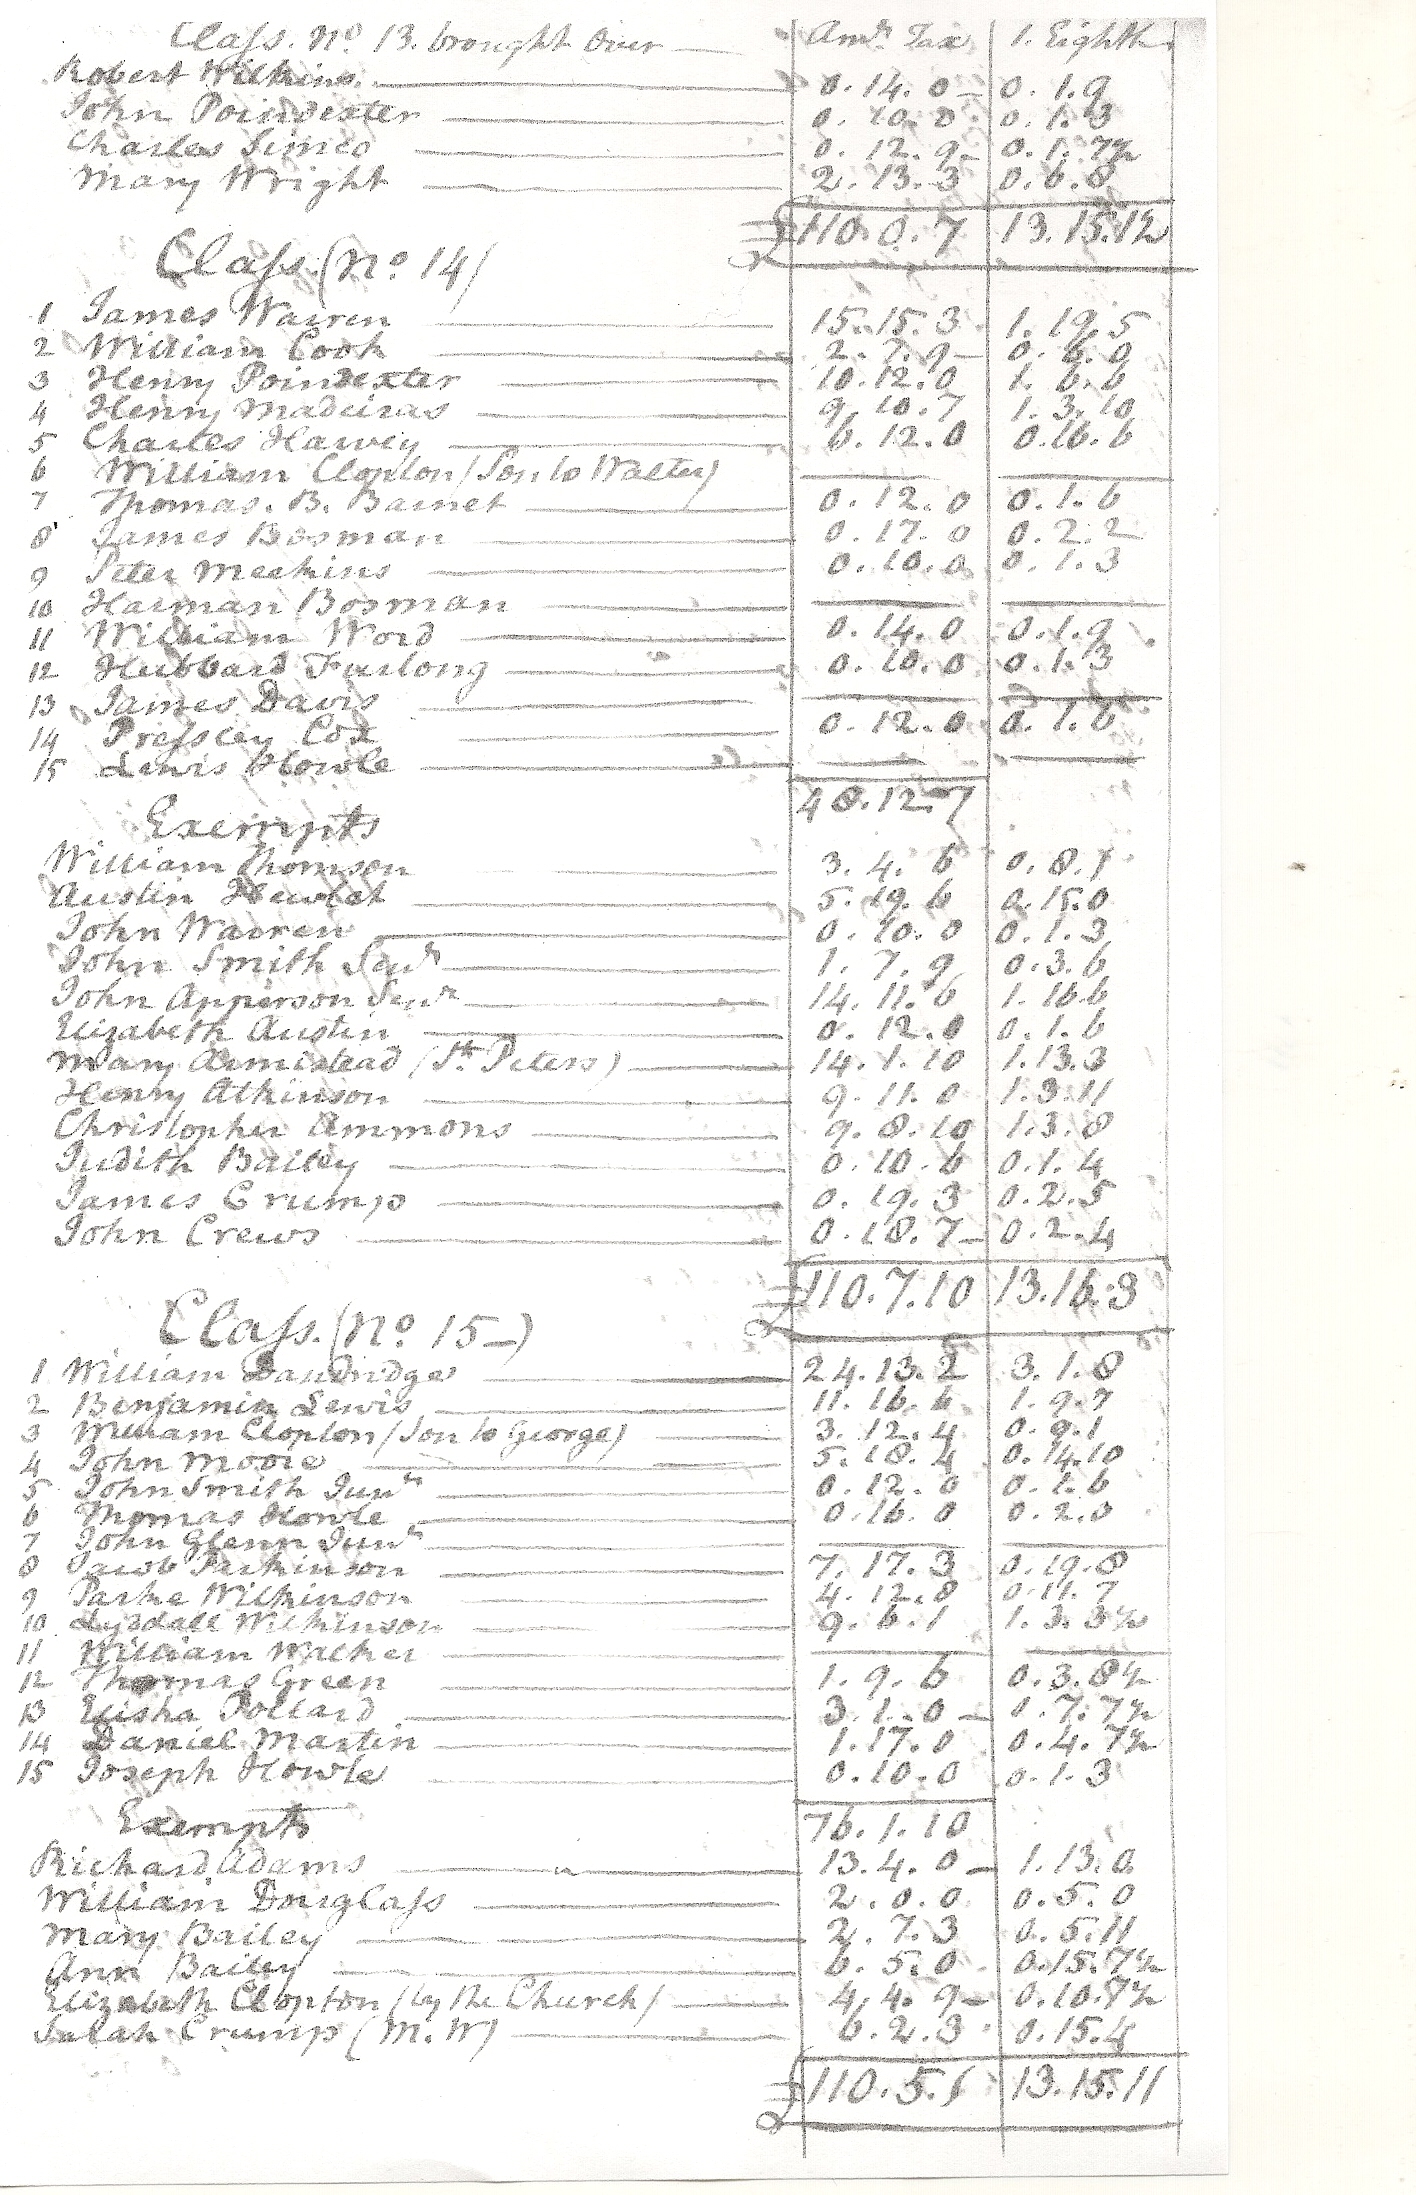 Class. No. 13. brought Over Amt. Tax 1. Eighth
Robert Wilkins. 0.14.0 0.1.9
John Poindexter 0.10.0 0.1.3
Charles Simco 0.12.9 0.1.7½
Mary Wright 2.13.3 0.6.8
£ 110.0.7 13.15.1½
Class (No. 14)
1 James Warren 15.15.3 1.19.5
2 William Cook 2.7.9 0.6.0
3 Henry Poindexter 10.12.0 1.6.6
4 Henry Madeiras 9.10.7 1.3.10
5 Charles Harvey 6.12.0 0.16.6
6 William Clopton (Son to Walter)
7 Thomas. B. Barnet 0.12.0 0.1.6
8 James Bosman 0.17.0 0.2.2
9 Peter Meekins 0.10.0 0.1.3
10 Harman Bosman
11 William Word 0.14.0 0.1.9
12 Hubbard Furlong 0.10.0 0.1.3
13 James Davis
14 Pressley Cox 0.12.0 0.1.6
15 Lewis Howle
48.12.7
Exempts
William Thomson 3.4.6 0.8.1
Austin Hewlet 5.19.6 0.15.0
John Warren 0.10.0 0.1.3
John Smith Senr 1.7.9 0.3.6
John Apperson Senr 14.11.6 1.16.6
Elizabeth Austin 0.12.0 0.1.6
Mary Armistead (St. Peters) 14.1.10 1.13.3
Henry Atkinson 9.11.0 1.3.11
Christopher Ammons 9.8.10 1.3.8
Judith Bailey 0.10.6 0.1.4
James Crump 0.19.3 0.2.5
John Crews 0.18.7 0.2.4
£ 110.7.10 13.16.3
Class. (No. 15)
1 William Dandridge 24.13.2 3.1.8
2 Benjamin Lewis 11.16.6 1.9.7
3 William Clopton (Son to George) 3.12.4 0.9.1
4 John Moore 5.18.4 0.14.10
5 John Smith Junr 0.12.0 0.1.6
6 Thomas Howle 0.16.0 0.2.0
7 John Glenn Junr
8 Jacob Parkinson 7.17.3 0.19.8
9 Parke Wilkinson 4.12.8 0.11.7
10 Lyddall Wilkinson 9.6.1 1.3.3½
11 William Walker
12 Thomas Green 1.9.6 0.3.8½
13 Elisha Pollard 3.1.0 0.7.7½
14 Daniel Martin 1.17.0 0.4.7½
15 Joseph Howle 0.10.0 0.1.3
Exempts 76.1.10
Richard Adams 13.4.0 1.13.0
William Douglass 2.0.0 0.5.0
Mary Bailey 2.7.3 0.5.11
Ann Bailey 6.5.0 0.15.7½
Elizabeth Clopton (by the Church) 4.4.9 0.10.7½
Sarah Crump (M. W) 6.2.3 0.15.4
£ 110.5.1 13.15.11